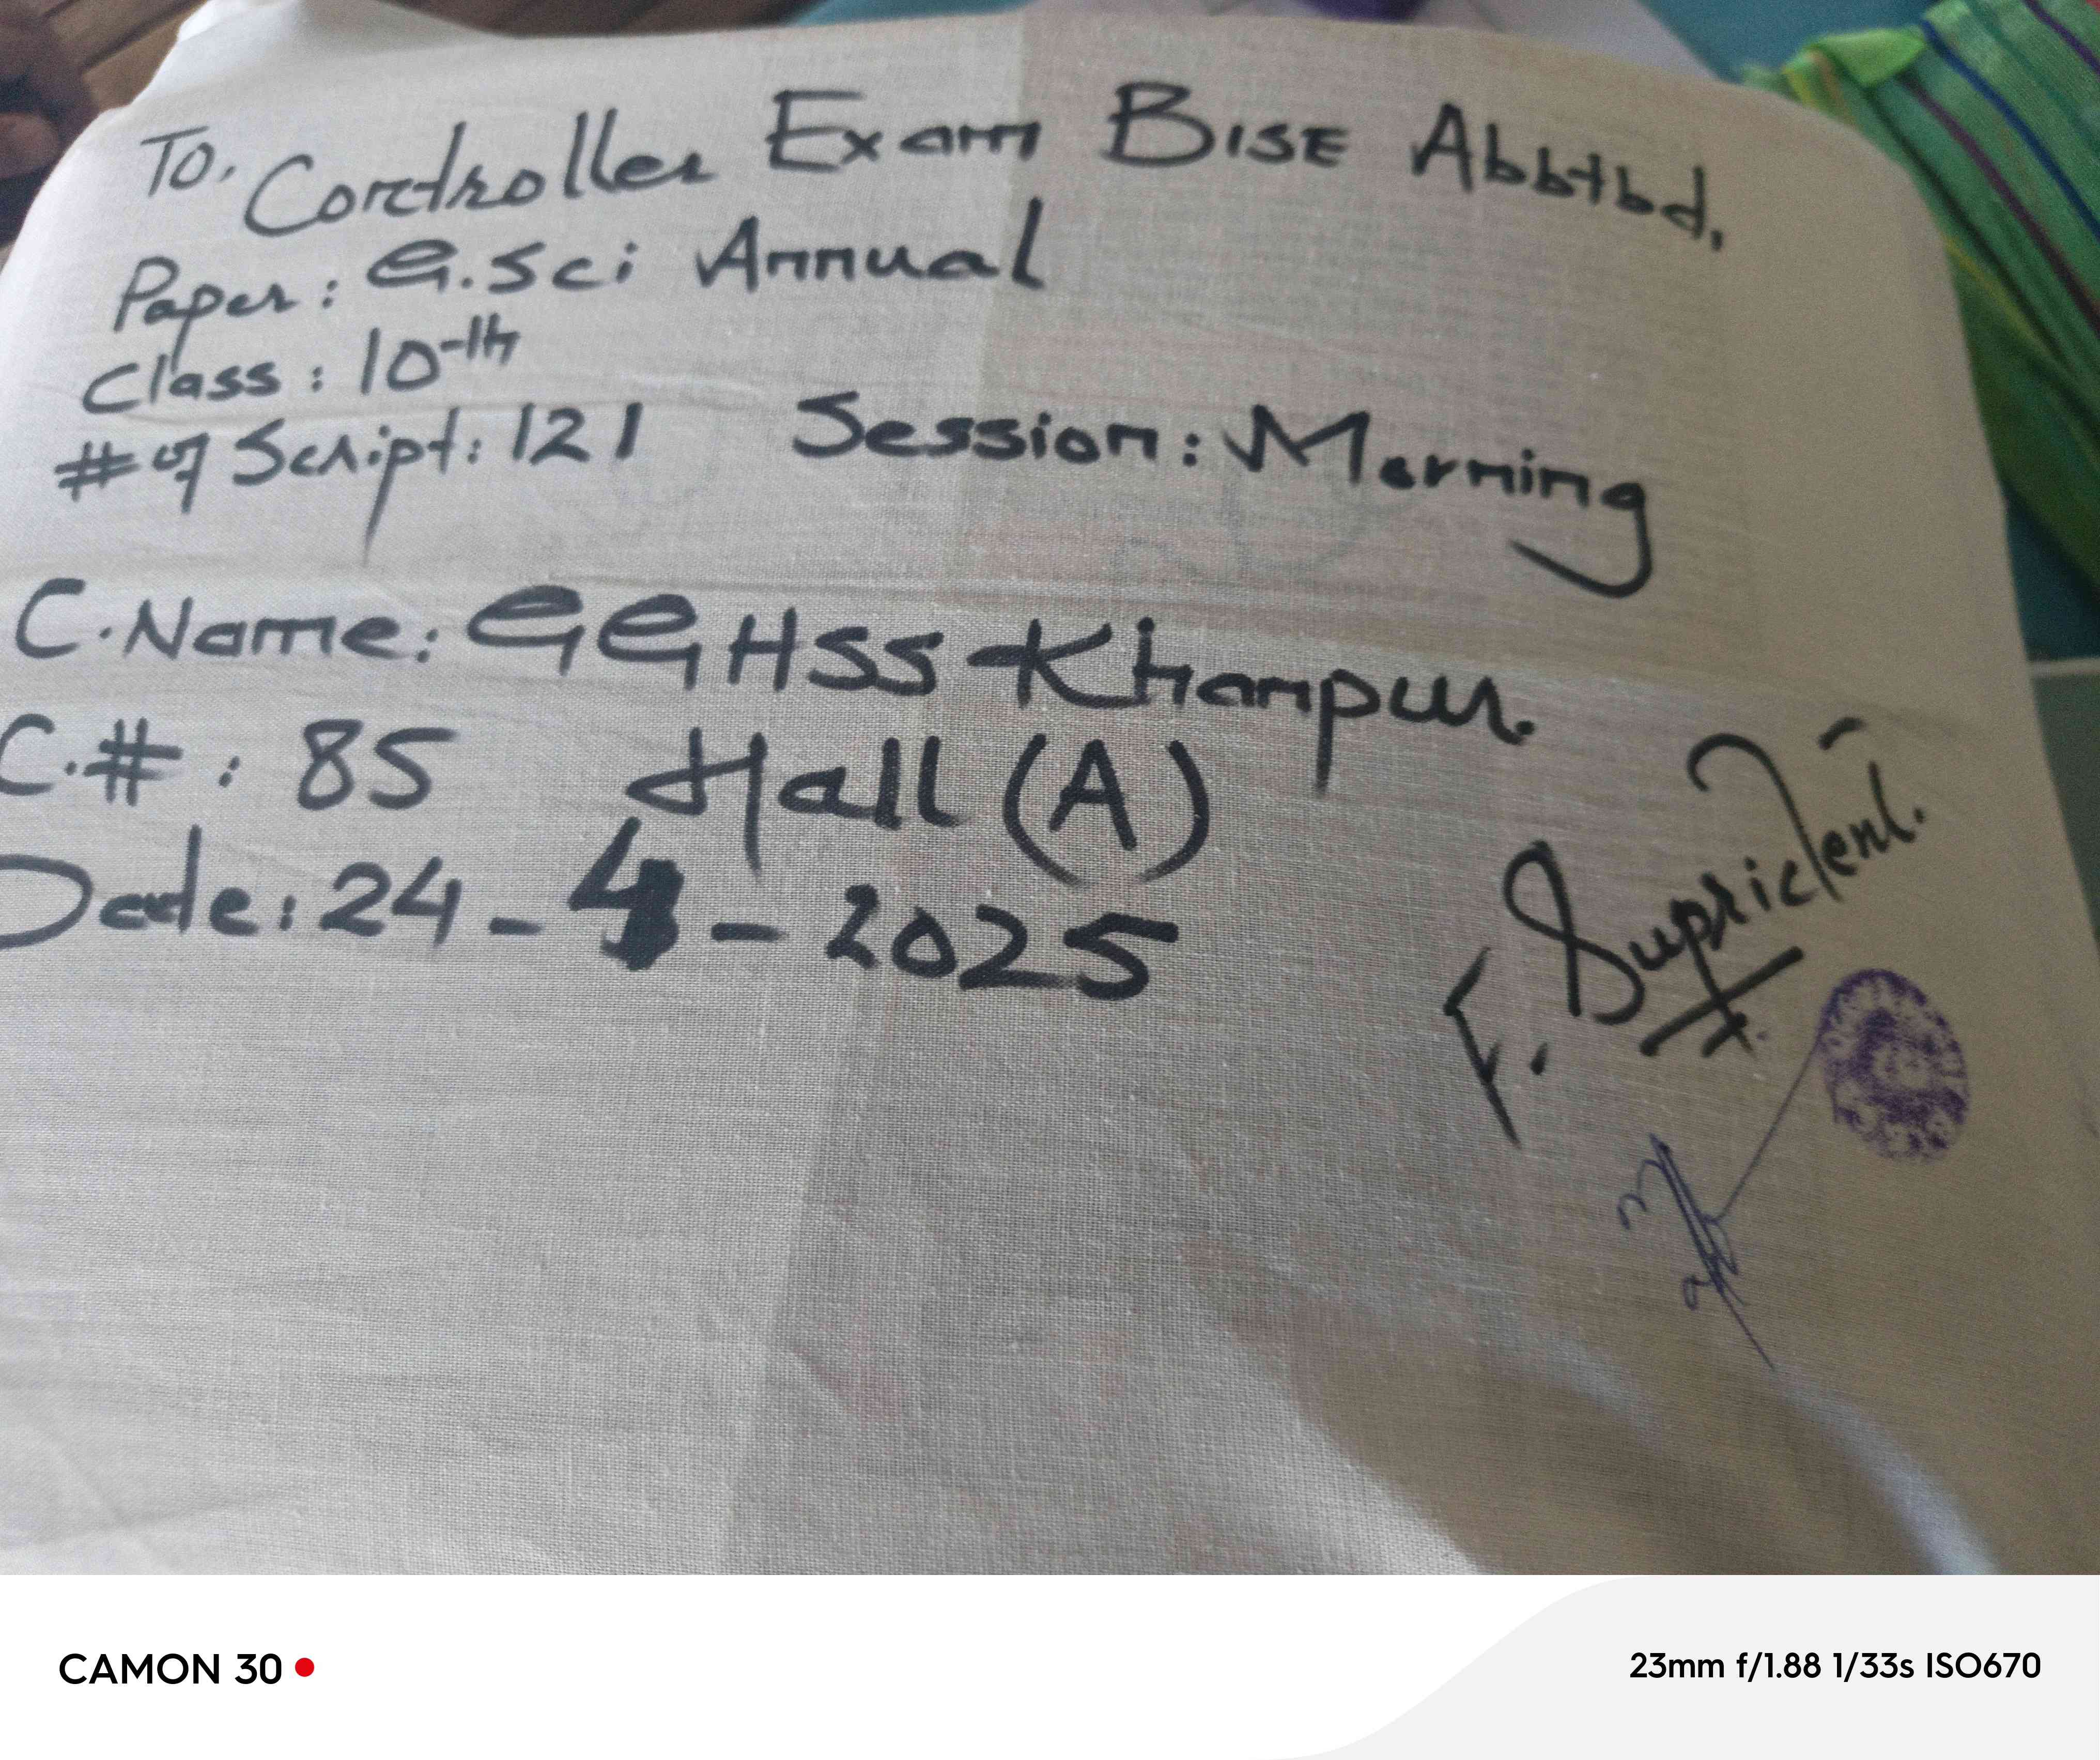 To, Controller Exam BISE Abbtbd,
Paper: G.Sci Annual
Class: 10th
# of Script: 121 Session: Morning
C.Name: GGHSS Khanpur.
C.#: 85 Hall (A)
Date: 24-4-2025
F. Supridenl.
CAMON 30
23mm f/1.88 1/33s ISO670